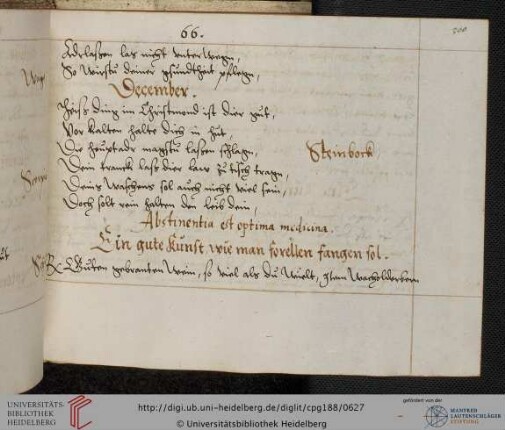 66.
500
Aderlaßen las nicht vnterwegen,
So wirstu deiner gsundtheit pflegn,
December.
Heiß ding im Christmond ist dier gut,
Vor kalten halte dich in hut,
Die hauptadr magstu laßen schlagn,
Steinbock
Dein tranck laß dier law zu tisch tragn,
Deins waschens sol auch nicht viel sein,
Doch solt rein halten den leib dein,
Abstinentia est optima medicina.
Ein gute Kunst wie man forellen fangen sol.
Guten gebranten Wein, so viel als du wilt, Item wacholderbern
UNIVERSITÄTS-
BIBLIOTHEK
HEIDELBERG
http://digi.ub.uni-heidelberg.de/diglit/cpg188/0627
© Universitätsbibliothek Heidelberg
gefördert von der
MANFRED
LAUTENSCHLÄGER
STIFTUNG